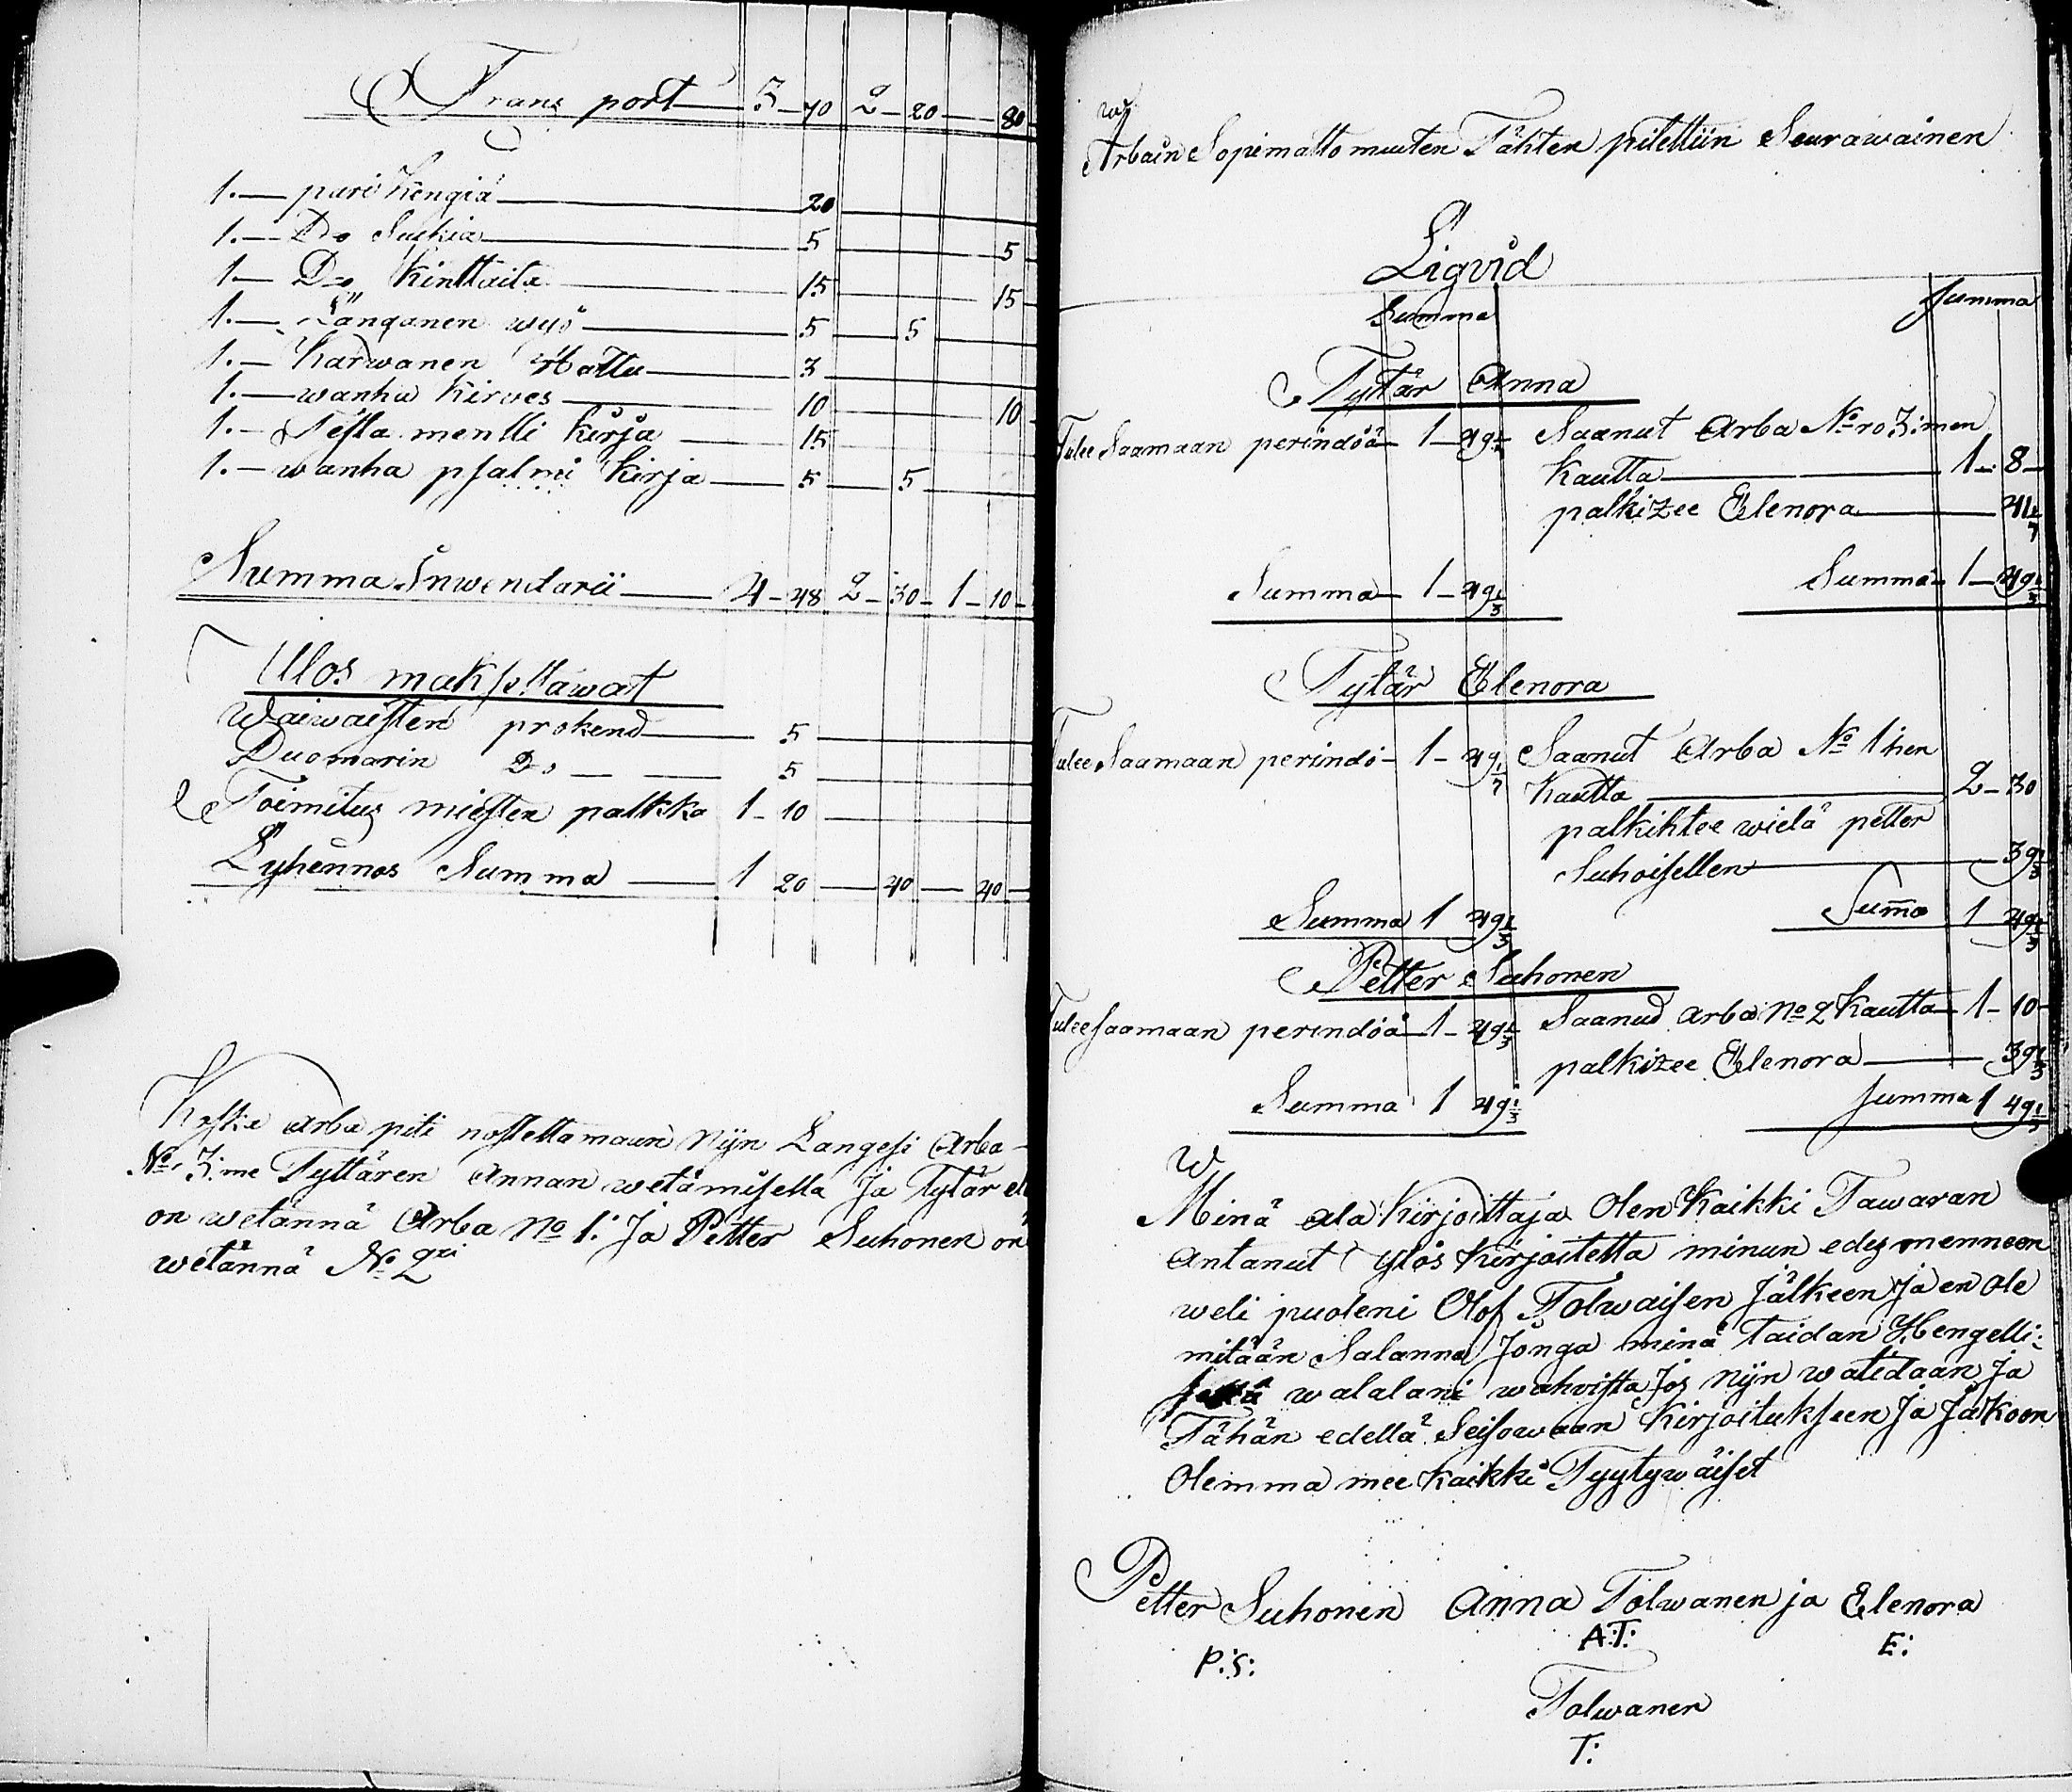 Trans port 3 - 70 2 - 20 - 80
1. - pari Kengiä 20
1. - Do Sukia 5 5
1 - Do Kinttaita 15 15
1. - Langanen wyö 5 5
1. - Karwanen Hattu 3
1. - wanha Kirves 10 10
1. - Testa mentti Kirja 15
1. - wanha psalmi Kirja 5 5
Summa Inwentarii 4 - 48 2 - 30 - 1 - 10 -
Ulos maksettawat
Waiwaisten prokend 5
Duomarin Do - 5
Toimitus miesten palkka 1 - 10
Lyhennös Summa 1 20 40 40
Koska arba piti nostettamaan nijn Langesi Arba
No 3:me Tyttären Annan wetämisella Ja Tytär el
on wetännä Arba No 1: Ja Petter Suhonen on
wetännä No 2
Arbain Sopimatto muuten Tähten pitettiin Seurawainen
Liqvid
Summa Summa
Tytär Anna
Tulee Saamaan perindöä 1 - 49 1/3 Saanut Arba No ro 3:men
Kautta 1 - 8 -
palkizee Elenora 41 1/3
Summa 1 - 49 1/3 Summa 1 - 49 1/3
Tytär Elenora
Tulee Saamaan perindö - 1 - 49 1/3 Saanut Arba No 1:hen
Kautta 2 - 30
palkihtee wielä petter
Suhoisellen 39 1/3
Summa 1 49 1/3 Suma 1 49 1/3
Petter Suhonen
Tulee saamaan perindöä 1 - 49 1/3 Saanud arba No 2 Kautta 1 - 10 -
palkizee Elenora 39 1/3
Summa 1 49 1/3 Summa 1 49 1/3
Minä ala Kirjoittaja Olen Kaikki Tawaran
Antanut Ylös Kirjoitetta minun edes menneen
weli puoleni Olof Tolwaisen Jälkeen Ja en ole
mitään Salanna Jonga minä Taidan Hengelli:
sellä walalani wahvista Jos nijn watidaan Ja
Tähän edellä Seisowaan Kirjoitukseen Ja Jakoon
Olemma mee Kaikki Tyytywäiset
Petter Suhonen Anna Tolwanen ja Elenora
P:S: A:T: E:
Tolwanen
T: